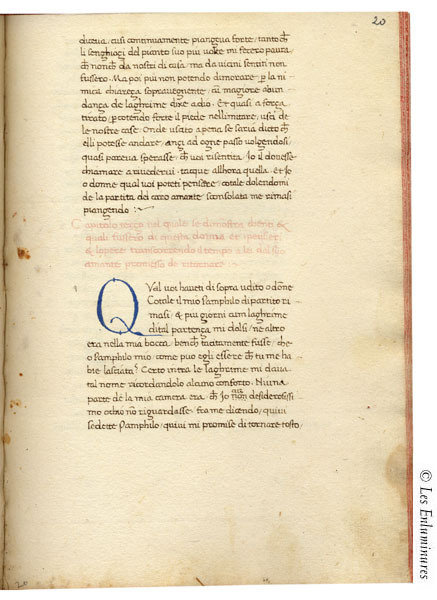 20
diceva, cusi continuamente piangeva forte, tanto ch
li senghioçi del pianto suo piu volte mi fecero paura
ch nonch da nostri di casa, ma da vicini sentiti non
fussero. Ma poi piu non potendo dimorare p la ni
mica chiareça sopravegnente, cū magiore abun
dança de laghrime dixe adio. Et quasi a força
tirato, pcotendo forte il piede nel limitare, usci de
le nostre case. Onde uscito apena se saria dicto ch
elli potesse andare, ançi ad ogne passo volgendosi
quasi pareva sperasse, ch voi risentita, Io il dovesse
chiamare a rivedervi. tacque allhora quella. et Io
o donne qual voi poteti pensere, cotale dolendomi
de la partita del caro amante, sconsolata me rimasi
piangendo
Capitolo terço nel quale se dimostra chenti et
quali fussero di questa donna et pensieri,
et lopere transcorrendo il tempo a lei dal suo
amante promesso de ritornare
Qual voi haveti di sopra udito o done
Cotale il mio Pamphilo dipartito ri
masi, et piu giorni cum laghrime
di tal partença mi dolsi, ne altro
era nella mia bocca, bench tacitamente fusse, che
o Pamphilo mio, come puo egli essere ch tu me ha
bie lasciata? Certo intra le laghrime mi dava
tal nome ricordandolo alcuno conforto. Niuna
parte de la mia camera era, ch Io con desiderosissi
mo ochio nō riguardasse, fra me dicendo, quivi
sedette Pamphilo, quivi mi promise di tornare tosto
20
© Les Enluminures